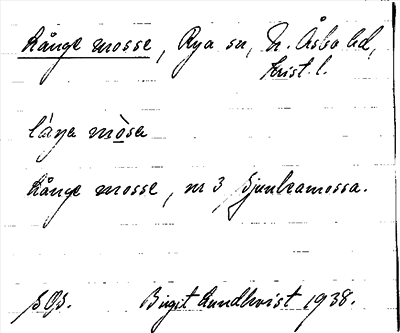 Långe mosse, Rya sn, N. Åsbo hd,
Krist. l.
låŋa mòsa
Långe mosse, nr 3 Sjunkamossa.
Birgit Lundkvist 1938.